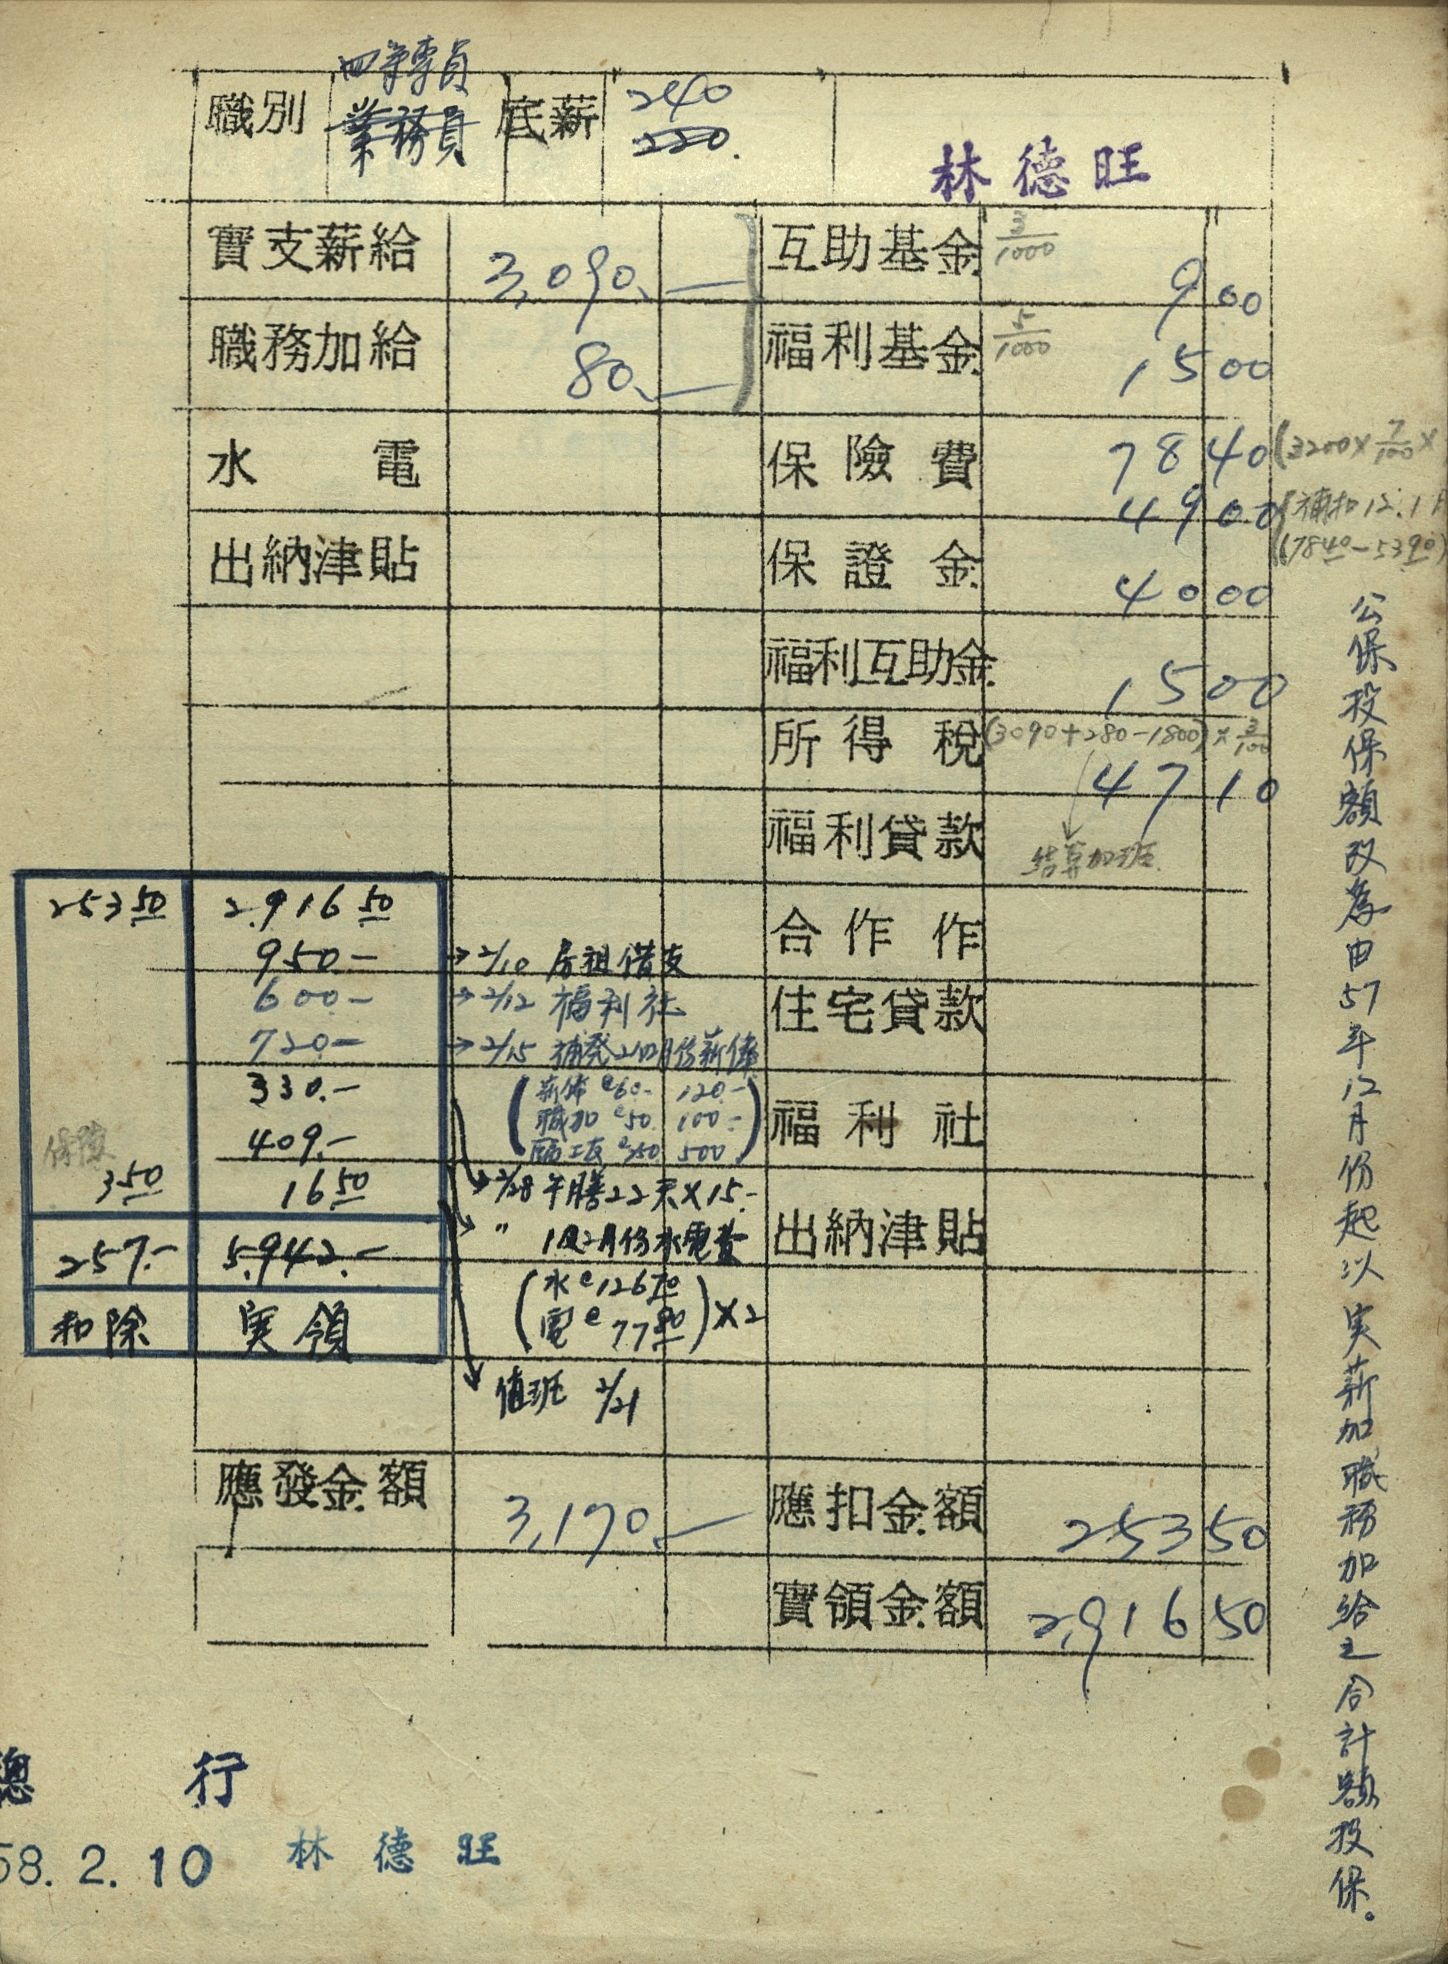 四等專員
職別 業務員 底薪 240
220.
林德旺
實支薪給 3,090.— 互助基金 3/1000 9 00
職務加給 80.— 福利基金 5/1000 15 00
水電 保險費 78 40 (3200×7/100×
49 00 補扣12.1月
(7840-5390)
出納津貼 保證金 40 00
福利互助金 15 00
所得稅 (3090+280-1800)×3/100
47 10
福利貸款 結算加班
合作作
住宅貸款
福利社
出納津貼
253 50 2,916 50
950.— →2/10 房租借支
600— →2/12 福利社
720— →2/15 補発
330.—
409.—
保險
3 50 16 50
257.— 5,942.—
扣除 実領
(薪俸@60- 120.-
職加@50. 100.-
@250 500)
→2/28 午膳22天×15.-
→ 〃 1及2月份水電費
(水@126 70
電@77 80)×2
值班 2/21
應發金額 3,170.— 應扣金額 253 50
實領金額 2,916 50
公保投保額改為由57年12月份起以実薪加職務加給之合計額投保。
總行
58.2.10 林德旺